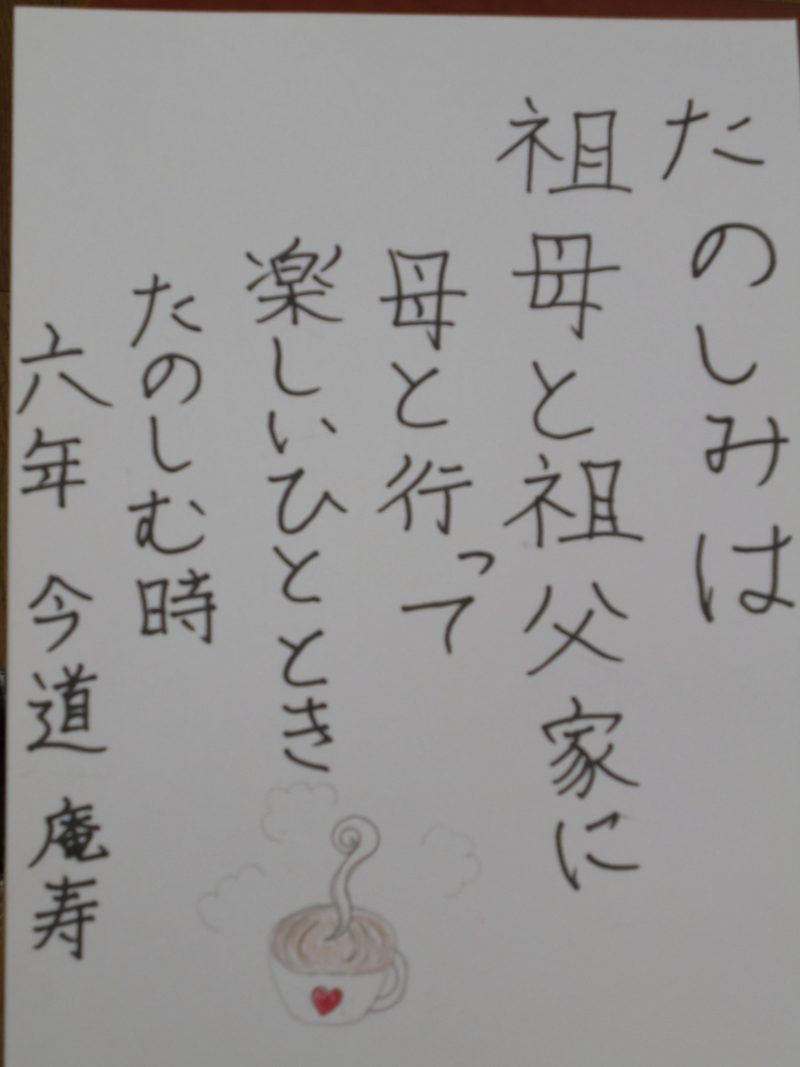 たのしみは
祖母と祖父家に
母と行って
楽しいひととき
たのしむ時
六年 今道 庵寿